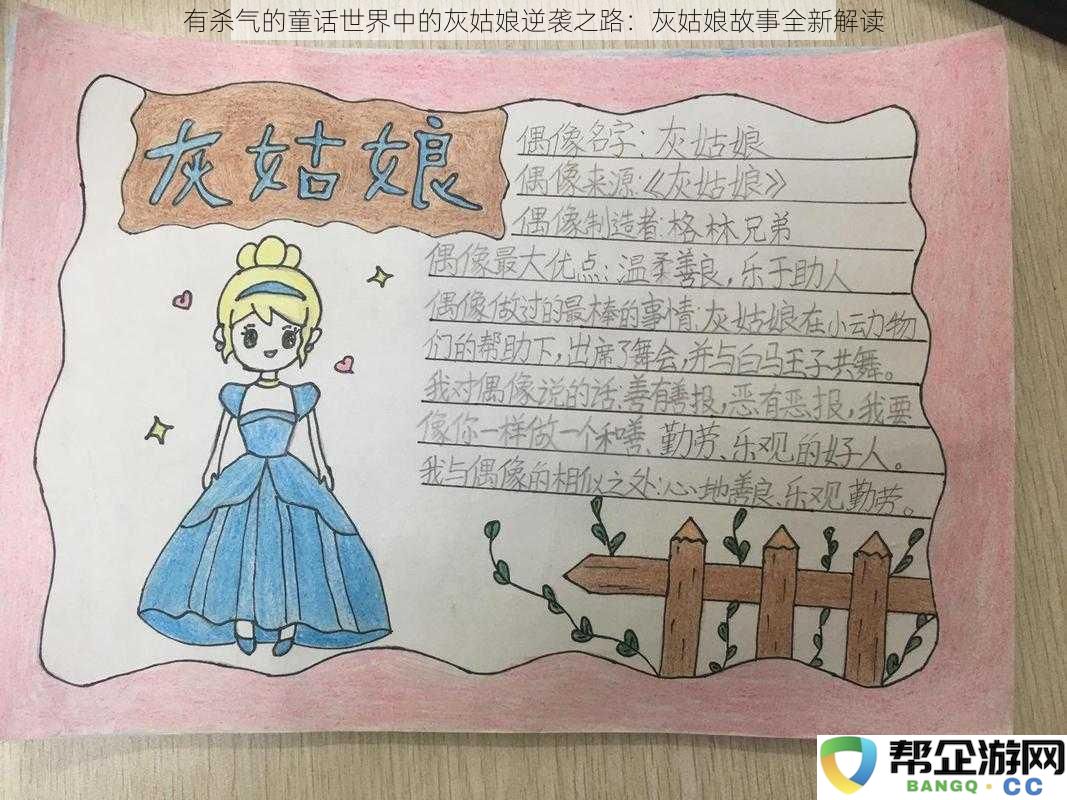 有杀气的童话世界中的灰姑娘逆袭之路：灰姑娘故事全新解读
灰姑娘
偶像名字：灰姑娘
偶像来源：《灰姑娘》
偶像制造者：格林兄弟
偶像最大优点：温柔善良，乐于助人
偶像做过的最棒的事情：灰姑娘在小动物
们的帮助下，出席了舞会，并与白马王子共舞。
我对偶像说的话：善有善报，恶有恶报，我要
像你一样做一个和善、勤劳、乐观的好人。
我与偶像的相似之处：心地善良、乐观、勤劳。
帮企游网
BANGQ·CC